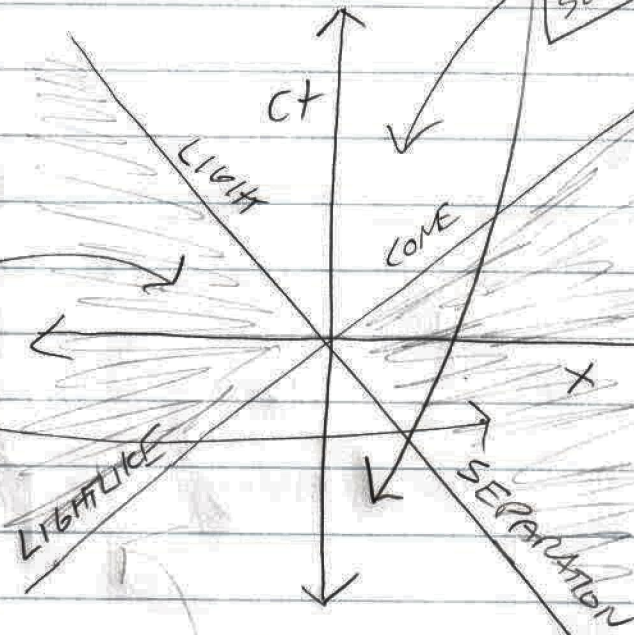 ct
LIGHT
CONE
X
LIGHTLIKE
SEPARATION